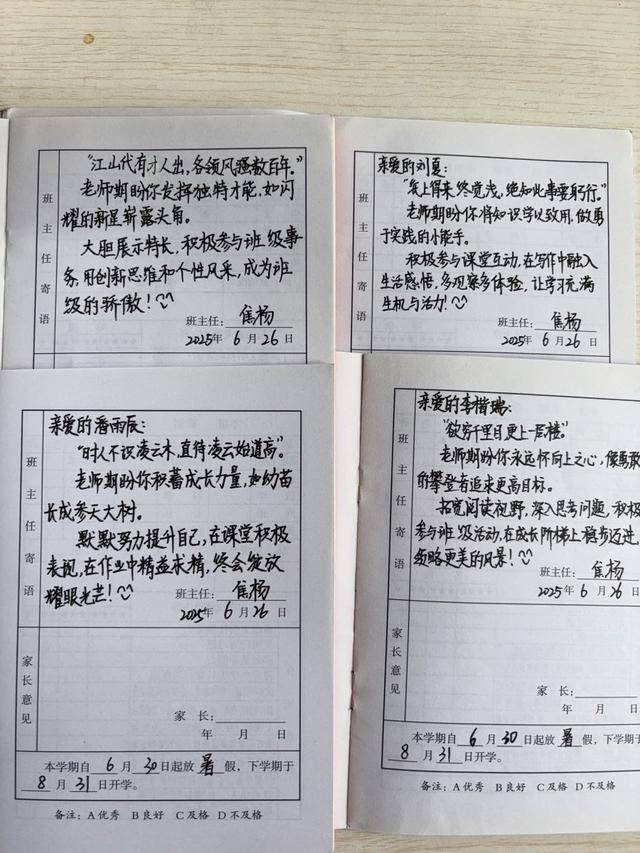 班主任寄语
"江山代有才人出,各领风骚数百年。"
老师期盼你发挥独特才能,如闪
耀的新星崭露头角。
大胆展示特长,积极参与班级事
务,用创新思维和个性风采,成为班
级的骄傲!
班主任:焦杨
2025年6月26日
班主任寄语
亲爱的刘夏:
"纸上得来终觉浅,绝知此事要躬行。"
老师期盼你将知识学以致用,做勇
于实践的小能手。
积极参与课堂互动,在写作中融入
生活感悟,多观察多体验,让学习充满
生机与活力!
班主任:焦杨
2025年6月26日
班主任寄语
亲爱的潘雨辰:
"时人不识凌云木,直待凌云始道高"。
老师期盼你积蓄成长力量,如幼苗
长成参天大树。
默默努力提升自己,在课堂积极
表现,在作业中精益求精,终会绽放
耀眼光芒!
班主任:焦杨
2025年6月26日
家长意见
家 长:
年 月 日
本学期自6月30日起放暑假,下学期于
8月31日开学。
备注:A优秀 B良好 C及格 D不及格
班主任寄语
亲爱的李楷瑞:
"欲穷千里目更上一层楼"。
老师期盼你永远怀向上之心,像勇敢
的攀登者追求更高目标。
拓宽阅读视野,深入思考问题,积极
参与班级活动,在成长阶梯上稳步迈进,
领略更美的风景!
班主任:焦杨
2025年6月26日
家长意见
家 长:
年 月 日
本学期自6月30日起放暑假,下学期于
8月31日开学。
备注:A优秀 B良好 C及格 D不及格